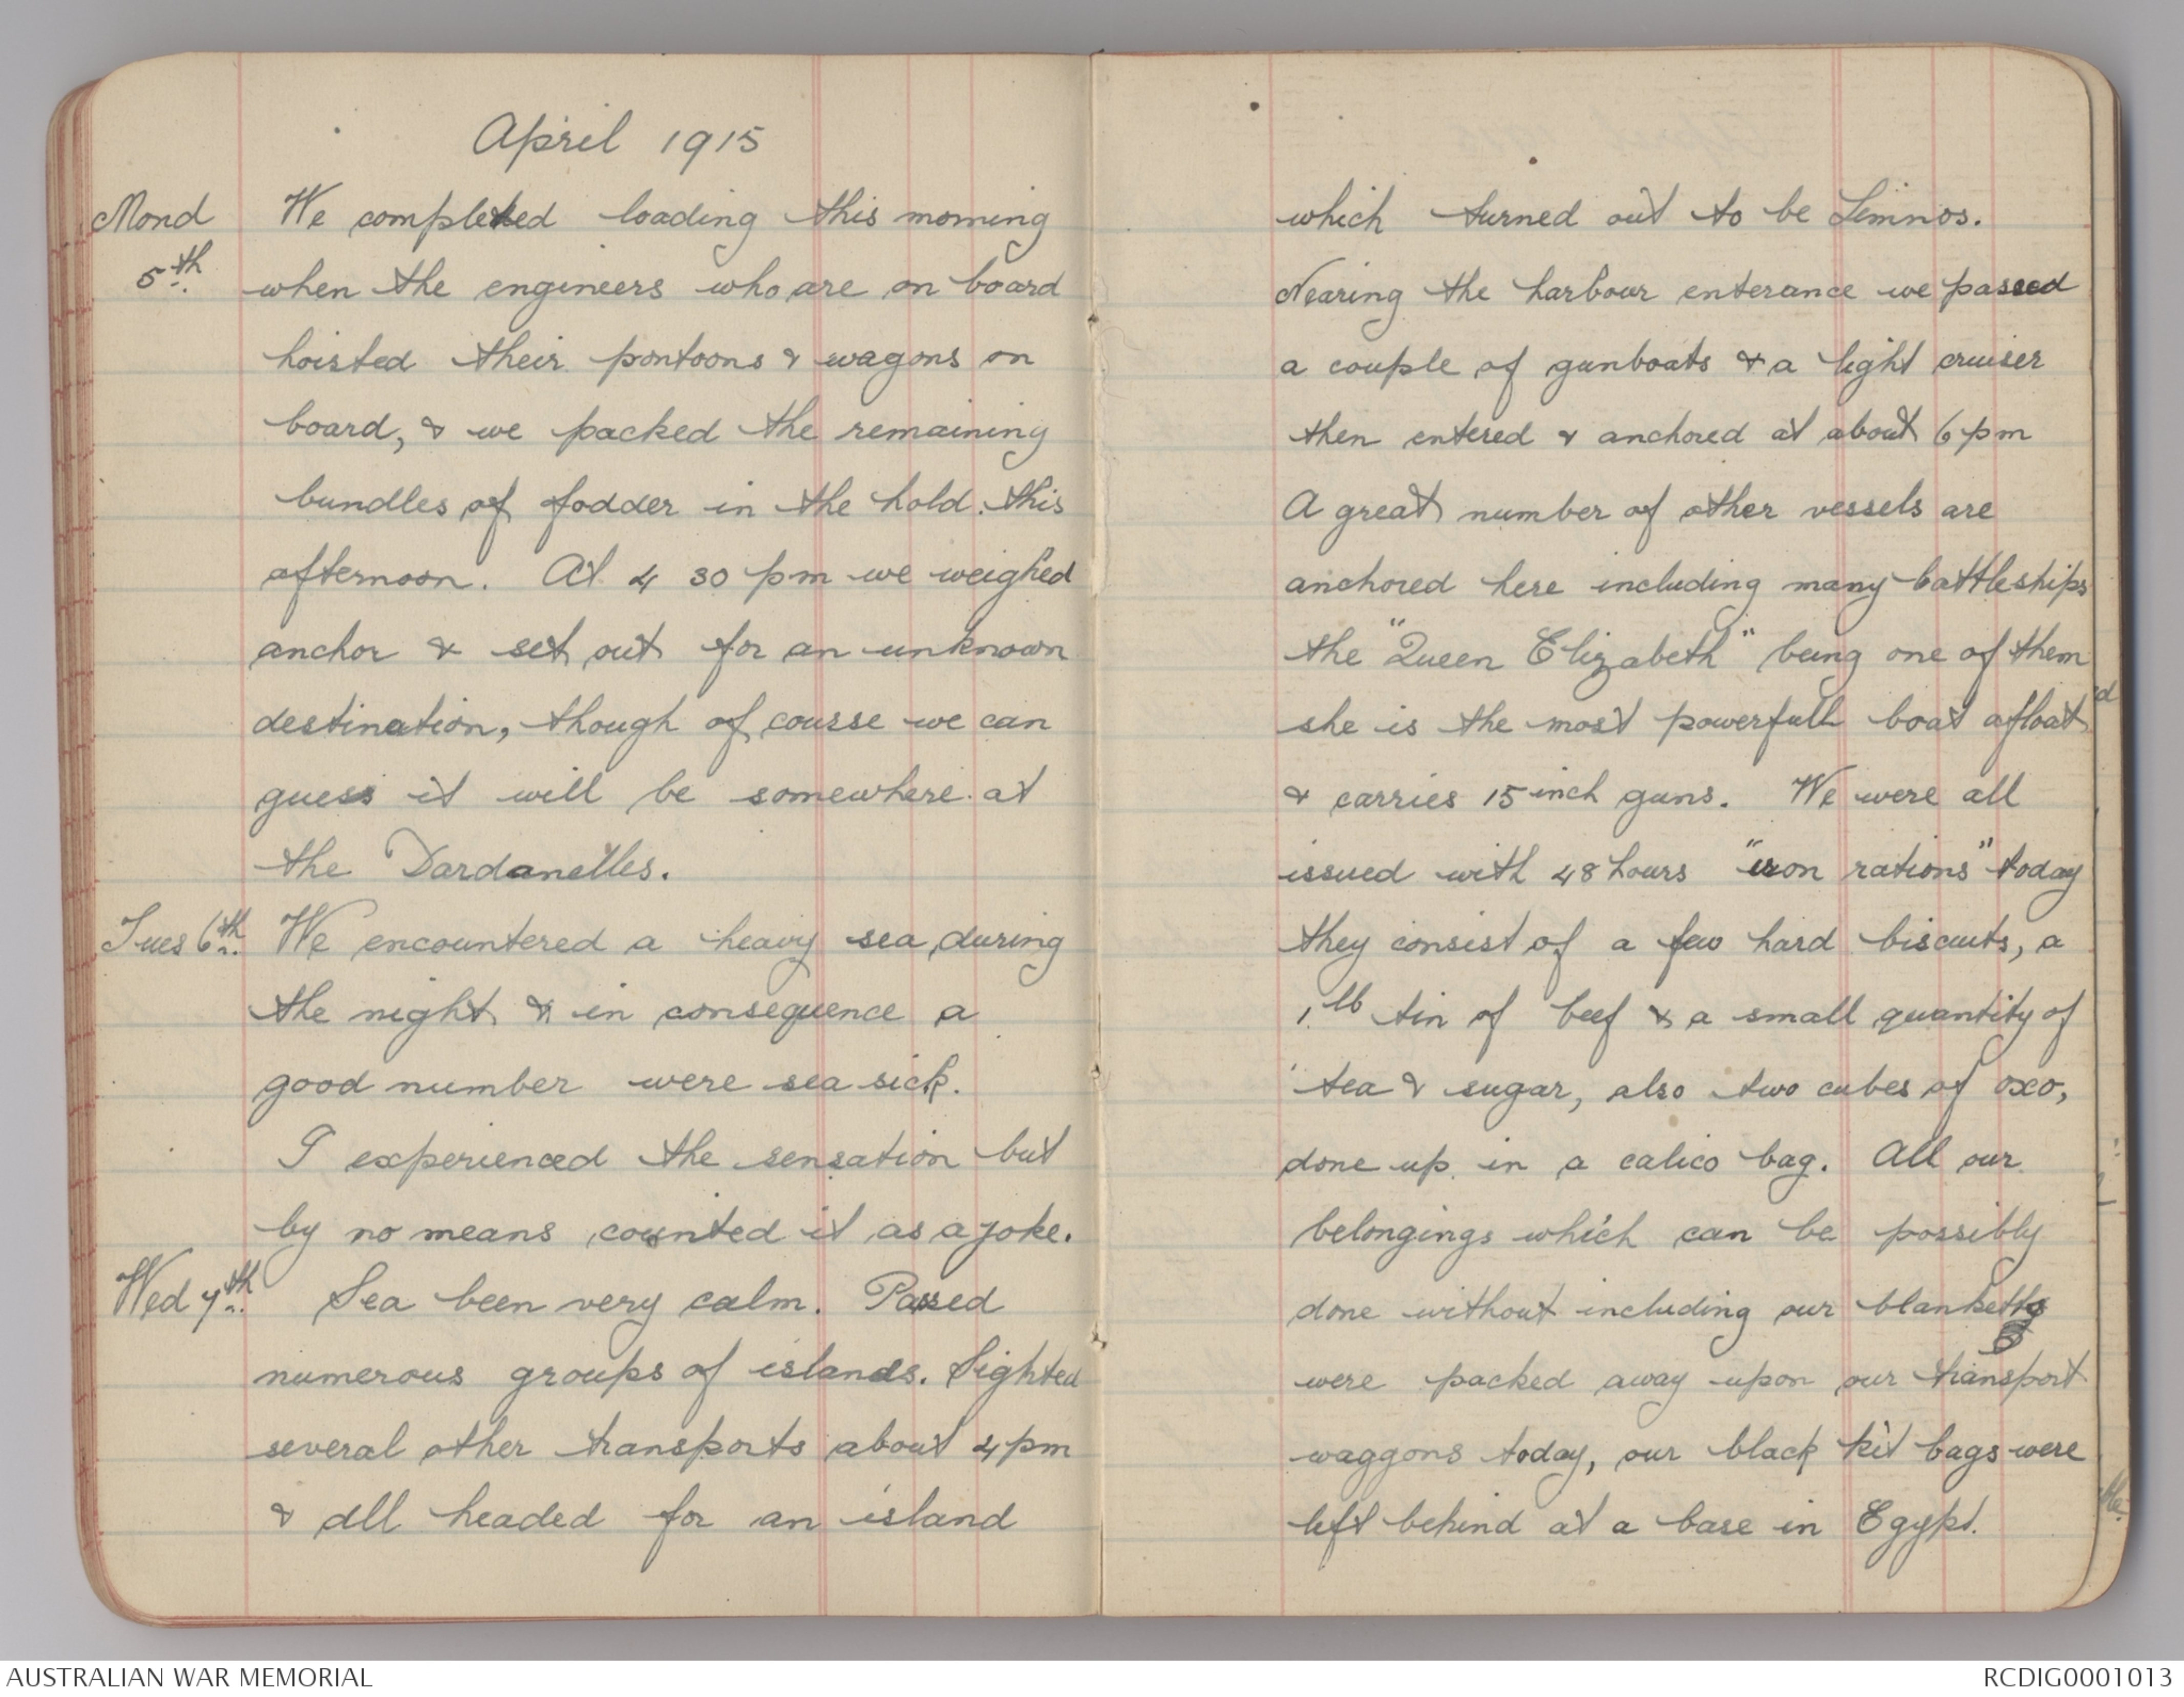 April 1915
Mond We completed loading this morning
5th when the engineers who are on board
hoisted their pontoons & wagons on
board, & we packed the remaining
bundles of fodder in the hold this
afternoon. At 4 30 pm we weighed
anchor & set out for an unknown
destination, though of course we can
guess it will be somewhere at
the Dardanelles.
Tues 6th We encountered a heavy sea during
the night & in consequence a
good number were sea sick.
I experienced the sensation but
by no means counted it as a joke.
Wed 7th Sea been very calm. Passed
numerous groups of islands. Sighted
several other transports about 4 pm
& all headed for an island
which turned out to be Limnos.
Nearing the harbour enterance we passed
a couple of gunboats & a light cruiser
then entered & anchored at about 6 pm
A great number of other vessels are
anchored here including many battleships
the "Queen Elizabeth" being one of them
she is the most powerfull boat afloat
& carries 15 inch guns. We were all
issued with 48 hours "iron rations" today
they consist of a few hard biscuits, a
1.lb tin of beef & a small quantity of
tea & sugar, also two cubes of oxo,
done up in a calico bag. All our
belongings which can be possibly
done without including our blankets
were packed away upon our transport
waggons today, our black kit bags were
left behind at a base in Egypt.
AUSTRALIAN WAR MEMORIAL
RCDIG0001013